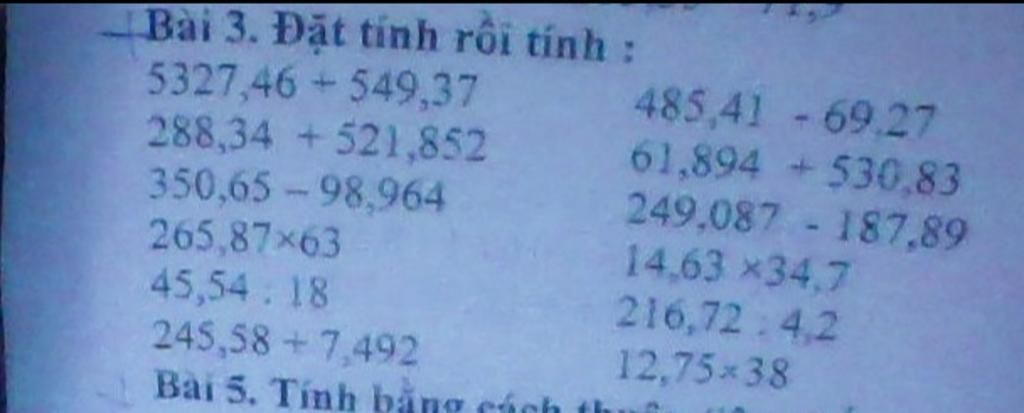 Bài 3. Đặt tính rồi tính :
5327,46 + 549,37
485,41 - 69.27
288,34 + 521,852
61,894 + 530,83
350,65 – 98,964
249,087 - 187,89
265,87×63
14,63 ×34,7
45,54 : 18
216,72 : 4,2
245,58 + 7,492
12,75×38
Bài 5. Tính bằng cách